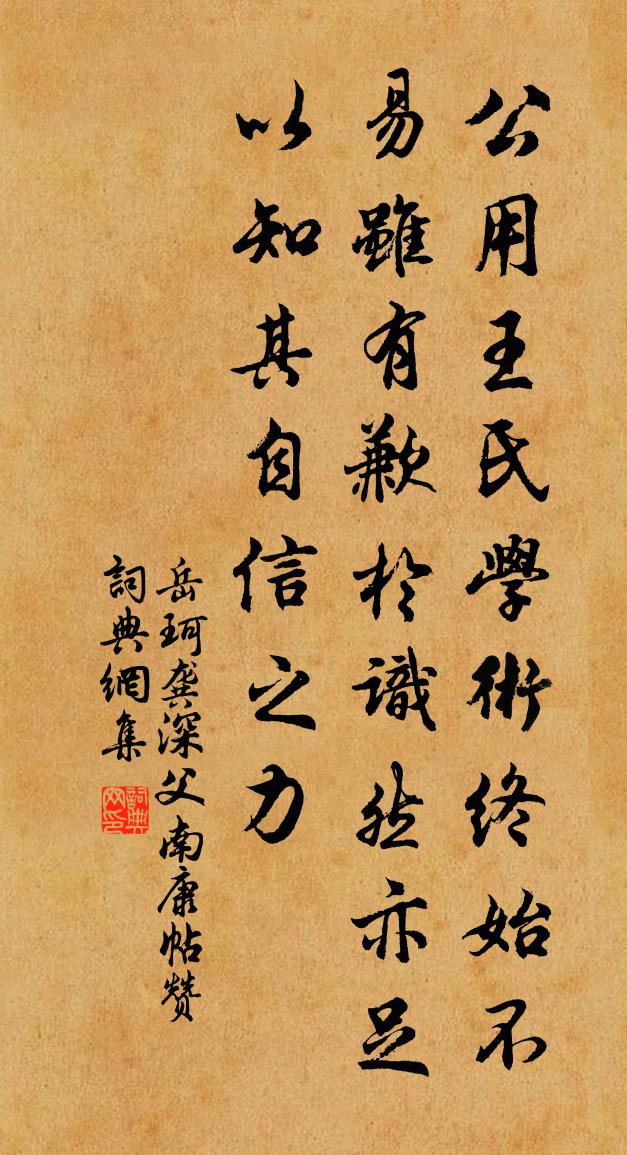 公用王氏學術終始不
易雖有歉於識然亦足
以知其自信之力
岳珂龔深父南康帖贊
詞典網集
詞典網印